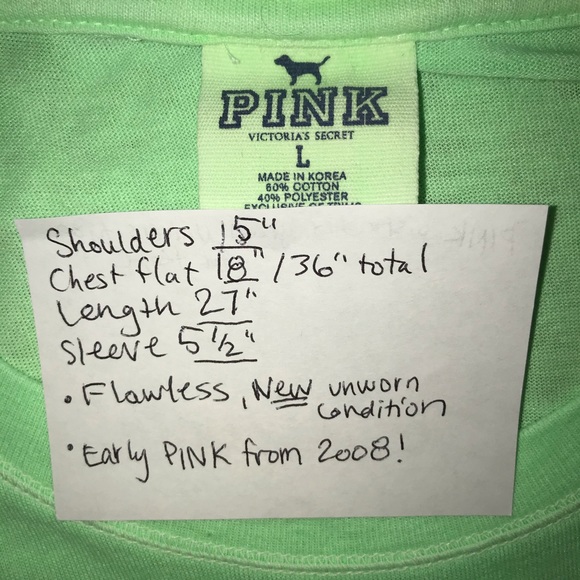 PINK
VICTORIA'S SECRET
L
MADE IN KOREA
60% COTTON
40% POLYESTER
EXCLUSIVE OF TRIMS
Shoulders 15"
Chest flat 18" / 36" total
Length 27"
Sleeve 5 1/2"
• Flawless, New unworn
condition
• Early PINK from 2008!